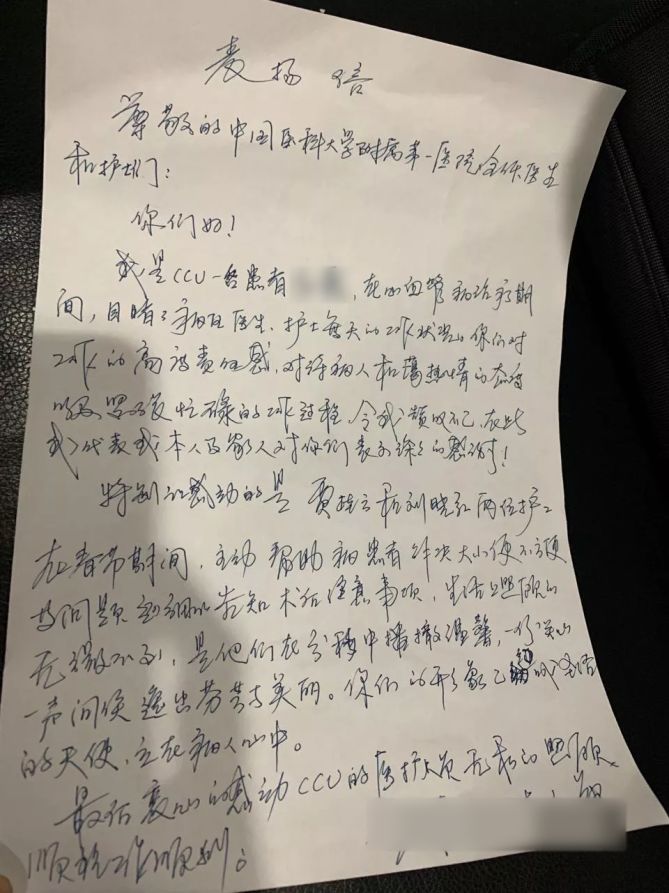 表扬信
尊敬的中国医科大学附属第一医院全体医生
和护士们：
你们好！
我是CCU一名患者，在心血管病治疗期
间，目睹了病区医生、护士每天的工作状况。你们对
工作的高度责任感，对待病人和蔼热情的态度
以及忙碌的工作过程，令我赞叹不已，在此
我代表我本人及家人对你们表示深深的感谢！
特别让我感动的是 刘晓红两位护工
在春节期间，主动帮助病患者解决大小便不方便
等问题 告知术后注意事项，生活上照顾的
无微不至，是他们在平稳中播撒温馨，一份关心
一声问候透出芬芳与美丽。你们的形象已
的天使，立在病人心中。
最后衷心的感动CCU的医护人员无私的照顾、
顺祝工作顺利。